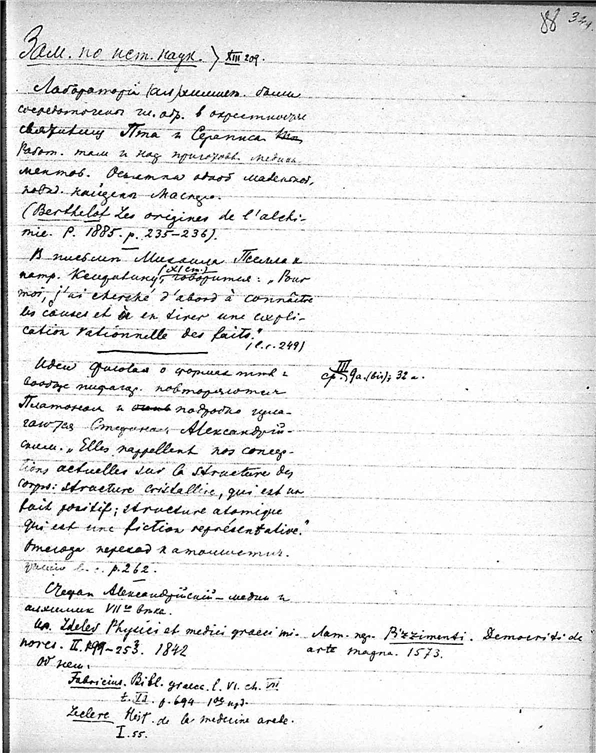 88 32
Зам. по ист. наук. XIII 209.
Лаборатории (ал)химич. были
сосредоточены гл. обр. в окрестностях
святилищ Пта и Сераписа
Работ. там и над приготовл. медика
ментов. Остатки одной
найдены Масперо.
(Berthelot Les origines de l'alchi-
mie. P. 1885. p. 235–236).
В письме Михаила Пселла к
патр. (XI ст.) говорится: „Pour
moi, j'ai cherché d'abord à connaître
les causes et à en tirer une expli-
cation rationnelle des faits."
(l.c. 249)
Идеи о формах
вообще пифагор. повторяются
Платоном и подробно изла-
гаются Стефаном Александрий-
ским. „Elles rappellent nos concep-
tions actuelles sur la structure des
corps: structure cristalline, qui est un
fait positif; structure atomique
qui est une fiction représentative."
Отсюда переход к атомистич.
l. c. p. 262.
ср. III 9a (bis); 32 a.
Стефан Александрийский – медик и
алхимик VII го века.
Ideler Physici et medici graeci mi-
nores. II. 199–253. 1842
Лат. пер. Pizzimenti. Democriti de
arte magna. 1573.
Об нем:
Fabricius. Bibl. graec. l. VI. ch. VII
p. 694 1ое изд.
Leclerc Hist. de la medecine arabe.
I. 55.